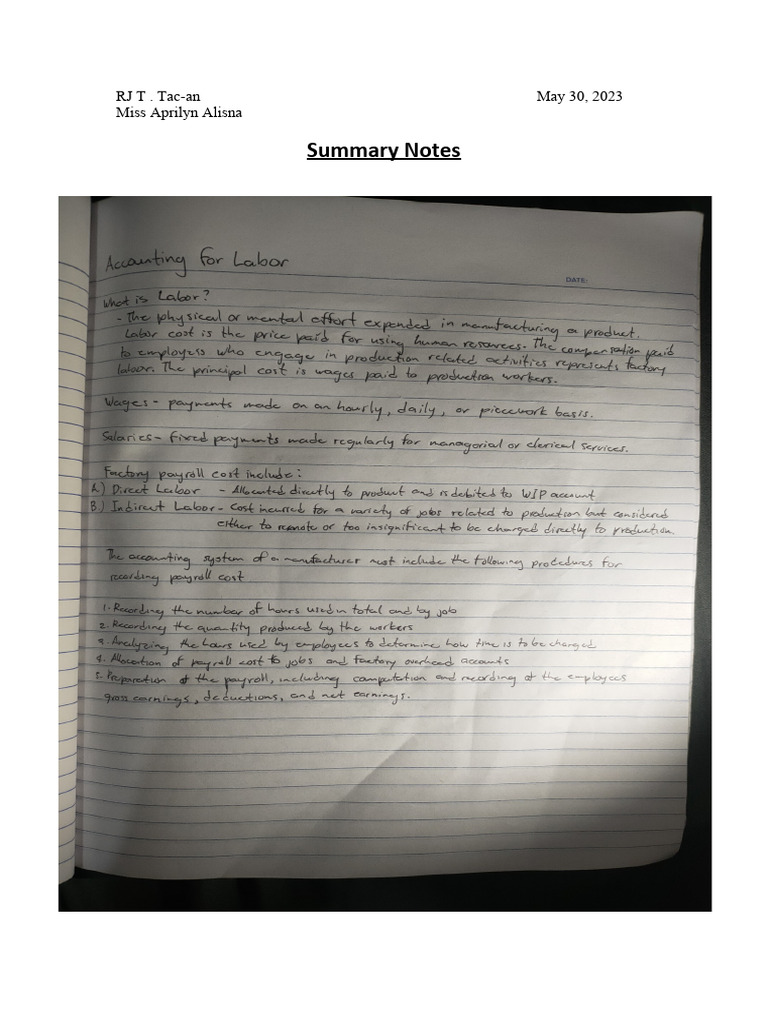 RJ T . Tac-an May 30, 2023
Miss Aprilyn Alisna
Summary Notes
Accounting for Labor
DATE:
What is Labor?
- The physical or mental effort expended in manufacturing a product.
Labor cost is the price paid for using human resources. The compensation paid
to employess who engage in production related activities represents factory
labor. The principal cost is wages paid to production workers.
Wages - payments made on an hourly, daily, or piecework basis.
Salaries - fixed payments made regularly for managorial or clerical services.
Factory payroll cost include:
A.) Direct Labor - Allocated directly to product and is debited to WIP account
B.) Indirect Labor - Cost incurred for a variety of jobs related to production but considered
either to remote or too insignificant to be charged directly to production.
The accounting system of a manufacturer must include the following procedures for
recording payroll cost
1. Recording the number of hours used in total and by job
2. Recording the quantity produced by the workers
3. Analyzing the hours used by employees to determine how time is to be charged
4. Allocation of payroll cost to jobs and factory overhead accounts
5. Preparation of the payroll, including computation and recording of the employees
gross earnings, deductions, and net earnings.